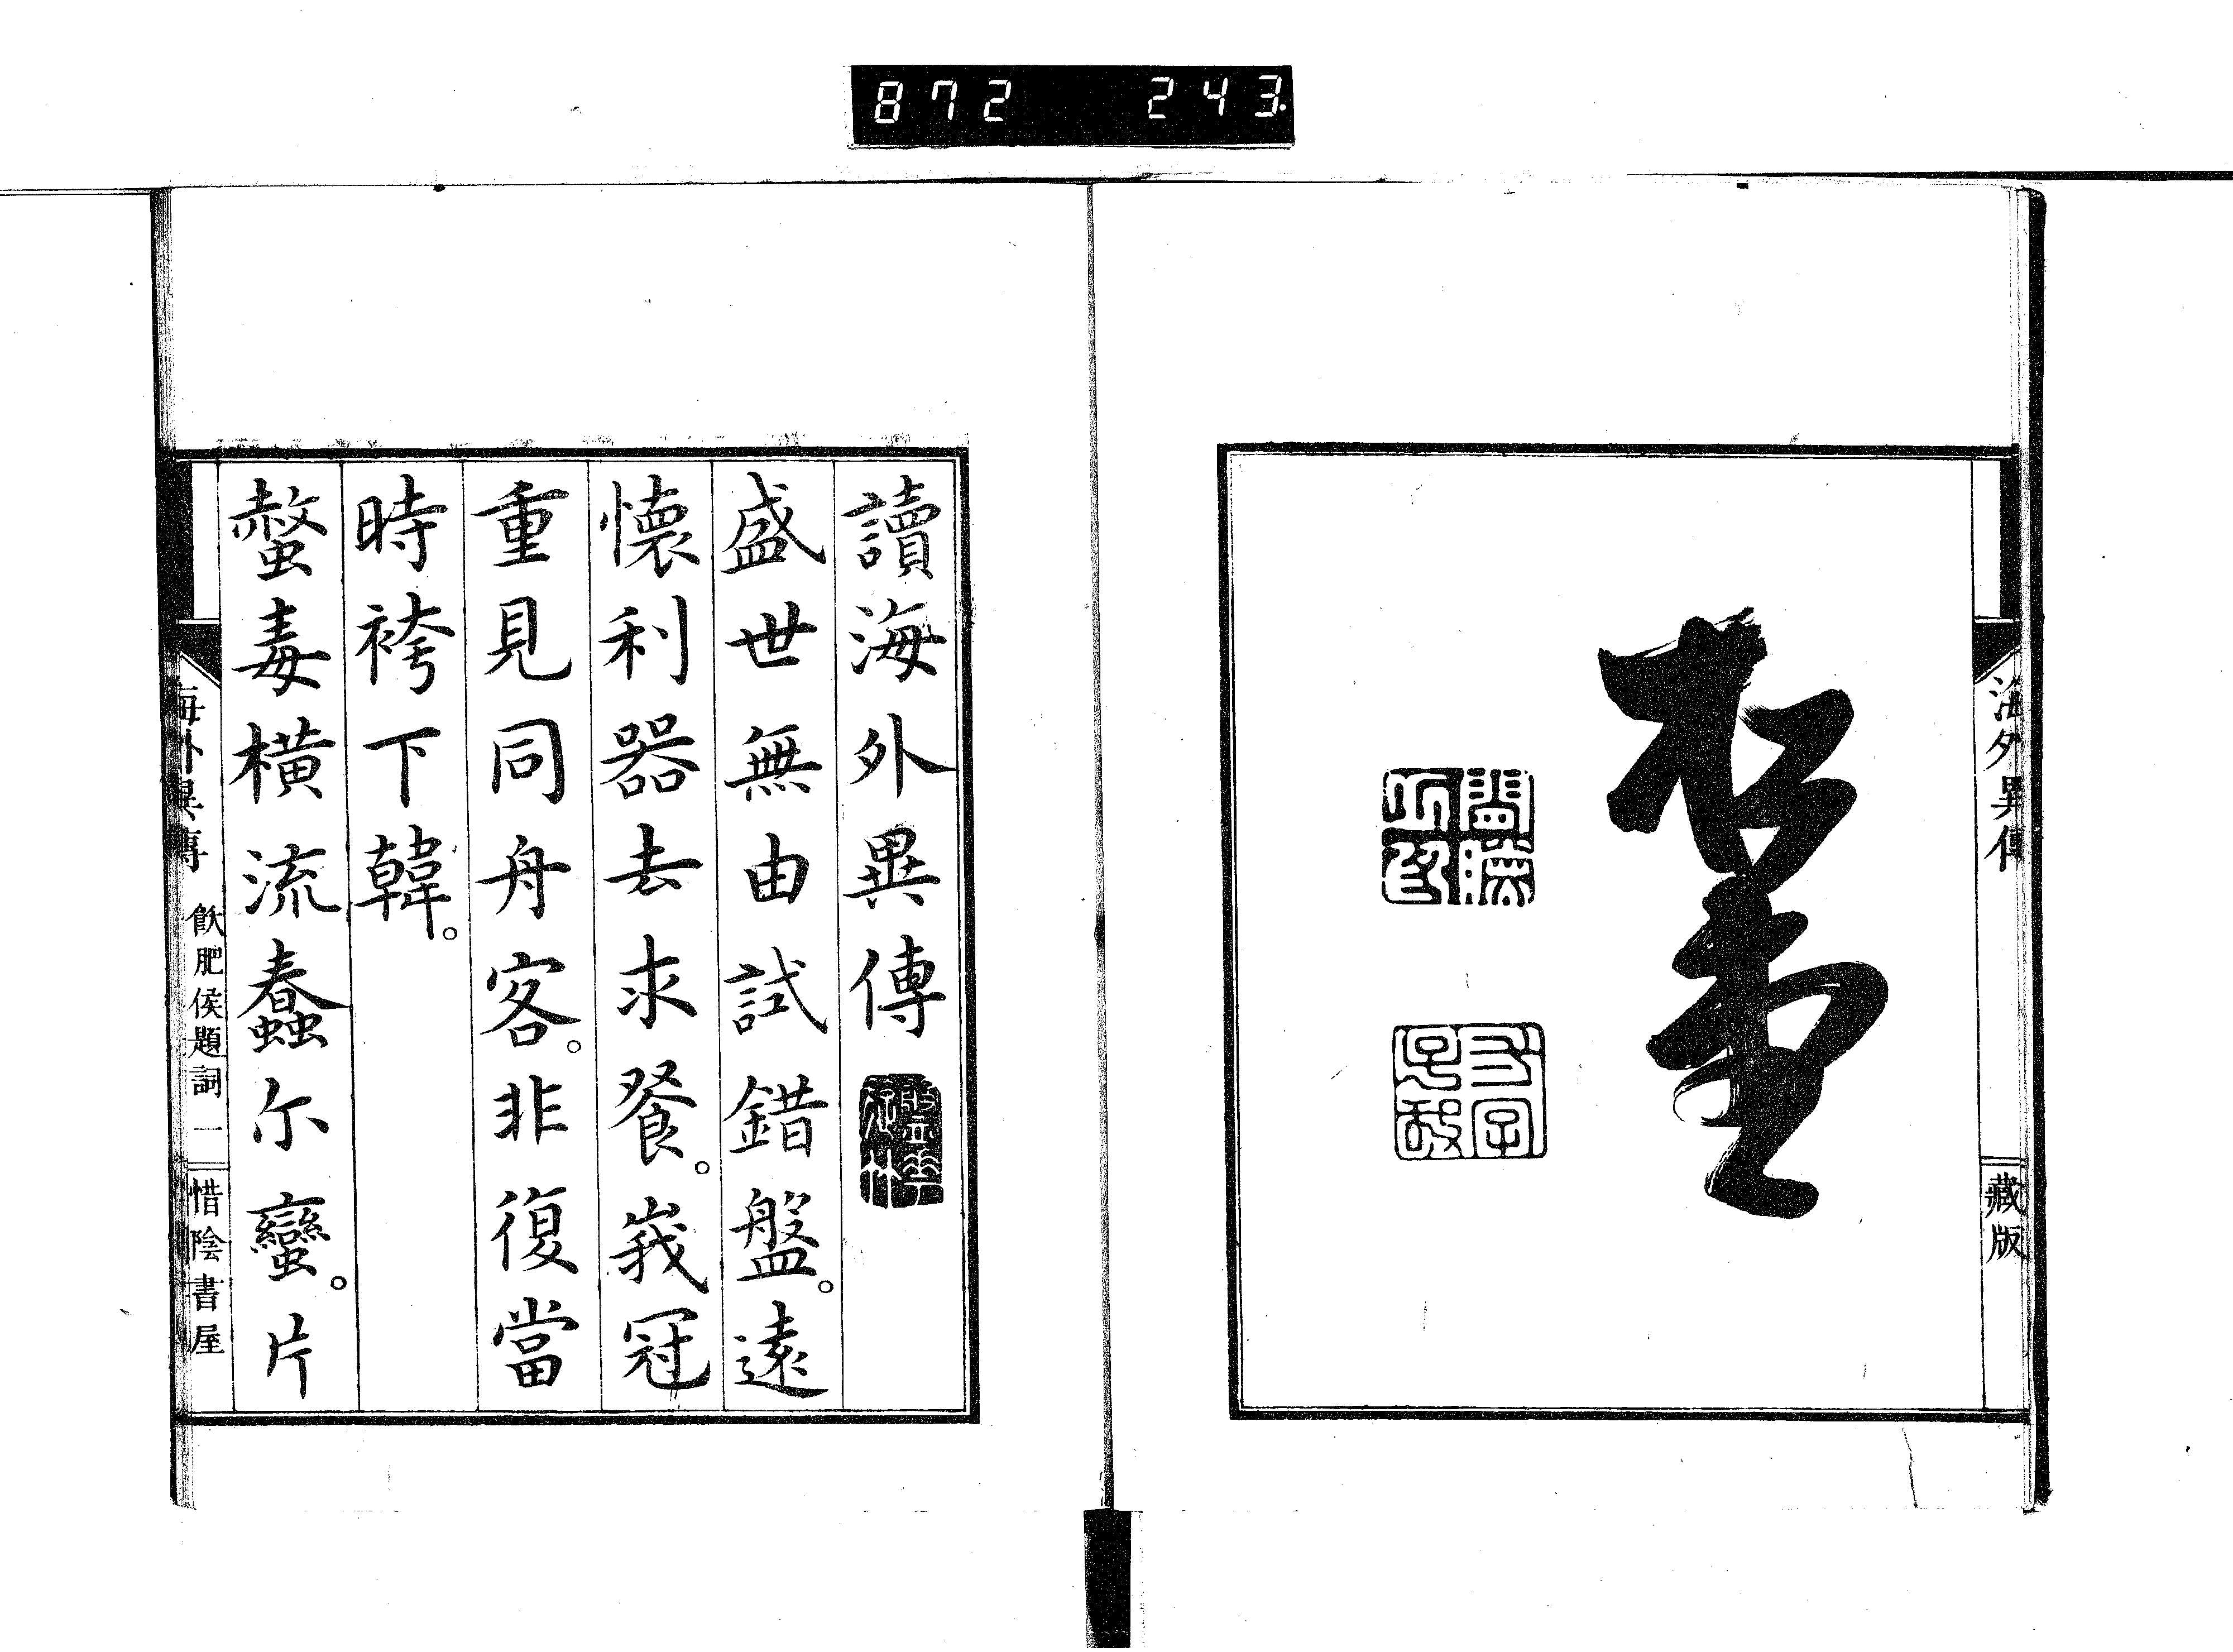 872 243
海外異傳
藏版
讀海外異傳
盛世無由試錯盤。遠
懐利器去求餐。峩冠
重見同舟客。非復當
時袴下韓。
螫毒橫流蠢尓蠻。片
海外異傳 飫肥侯題詞 一 惜陰書屋